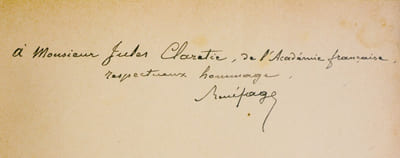 à Monsieur Jules Claretie, de l'Académie française,
respectueux hommage.
René Fage